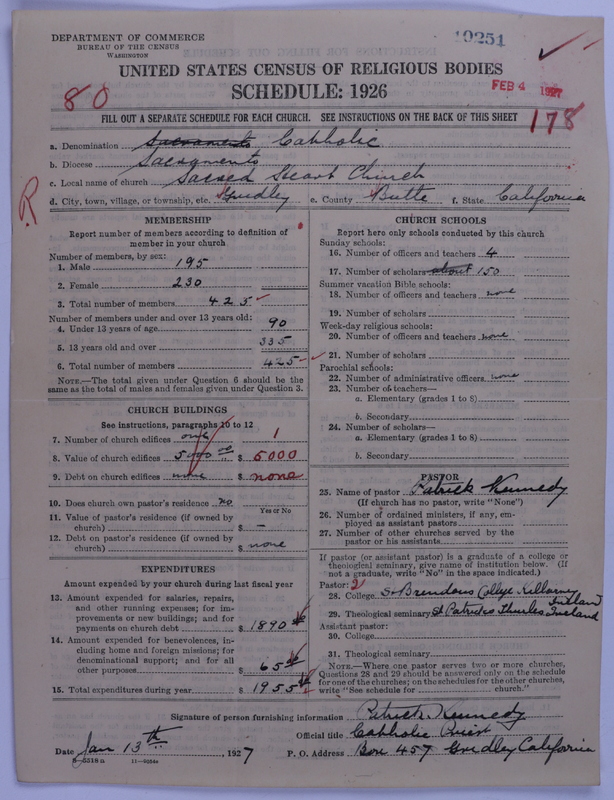 DEPARTMENT OF COMMERCE
BUREAU OF THE CENSUS
WASHINGTON
19251
UNITED STATES CENSUS OF RELIGIOUS BODIES
SCHEDULE: 1926
80
FEB 4 1927
FILL OUT A SEPARATE SCHEDULE FOR EACH CHURCH. SEE INSTRUCTIONS ON THE BACK OF THIS SHEET
178
a. Denomination Sacramento Catholic
b. Diocese Sacramento
c. Local name of church Sacred Heart Church
R
d. City, town, village, or township, etc. Gridley e. County Butte f. State California
MEMBERSHIP
Report number of members according to definition of
member in your church
Number of members, by sex:
1. Male 195
2. Female 230
3. Total number of members 425
Number of members under and over 13 years old:
4. Under 13 years of age 90
5. 13 years old and over 335
6. Total number of members 425
NOTE.—The total given under Question 6 should be the
same as the total of males and females given under Question 3.
CHURCH BUILDINGS
See instructions, paragraphs 10 to 12
7. Number of church edifices one 1
8. Value of church edifices 5000 00 $ 5000
9. Debt on church edifices none $ none
10. Does church own pastor's residence no
Yes or No
11. Value of pastor's residence (if owned by
church) $ —
12. Debt on pastor's residence (if owned by
church) $ none
EXPENDITURES
Amount expended by your church during last fiscal year
13. Amount expended for salaries, repairs,
and other running expenses; for im-
provements or new buildings; and for
payments on church debt $ 1890
14. Amount expended for benevolences, in-
cluding home and foreign missions; for
denominational support; and for all
other purposes $ 65
15. Total expenditures during year $ 1955
CHURCH SCHOOLS
Report here only schools conducted by this church
Sunday schools:
16. Number of officers and teachers 4
17. Number of scholars about 150
Summer vacation Bible schools:
18. Number of officers and teachers none
19. Number of scholars
Week-day religious schools:
20. Number of officers and teachers none
21. Number of scholars
Parochial schools:
22. Number of administrative officers none
23. Number of teachers—
a. Elementary (grades 1 to 8)
b. Secondary
24. Number of scholars—
a. Elementary (grades 1 to 8)
b. Secondary
PASTOR
25. Name of pastor Patrick Kennedy
(If church has no pastor, write "None")
26. Number of ordained ministers, if any, em-
ployed as assistant pastors
27. Number of other churches served by the
pastor or his assistants
If pastor (or assistant pastor) is a graduate of a college or
theological seminary, give name of institution below. (If
not a graduate, write "No" in the space indicated.)
Pastor: 2
28. College St Brendans College Killarney Ireland
29. Theological seminary St Patricks Thurles Ireland
Assistant pastor:
30. College
31. Theological seminary
NOTE.—Where one pastor serves two or more churches,
Questions 28 and 29 should be answered only on the schedule
for one of the churches; on the schedules for the other churches,
write "See schedule for church."
Signature of person furnishing information Patrick Kennedy
Official title Catholic Priest
Date Jan 13th, 1927 P. O. Address Box 457 Gridley California
8—5318 a 11—9084